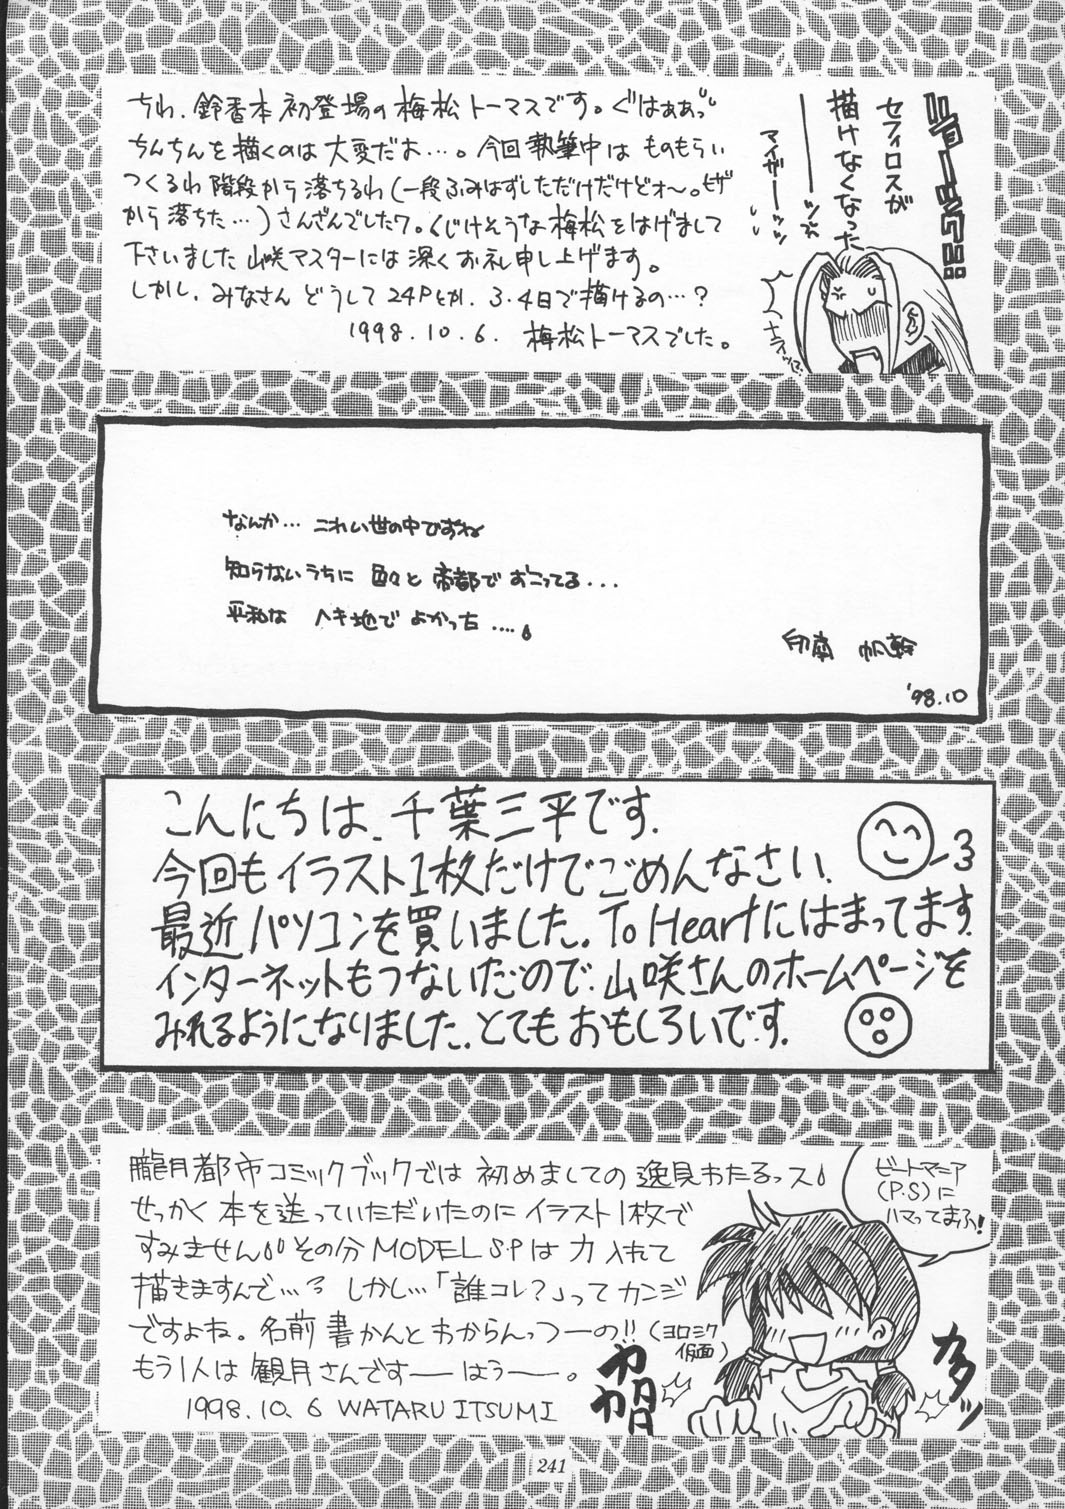 ちわ、鈴香本初登場の梅松トーマスです。ぐはぁぁっ
ちんちんを描くのは大変だお…。今回執筆中はものもらい
つくるわ階段から落ちるわ(一段ふみはずしただけだけどォ〜。ヒザ
から落ちた…)さんざんでしたワ。くじけそうな梅松をはげまして
下さいました山咲マスターには深くお礼申し上げます。
しかし、みなさんどうして24Pとか、3・4日で描けるの…?
1998.10.6. 梅松トーマスでした。
セフィロスが
描けなくなった
マイガーーッッ
なんか… こわい世の中ですね
知らないうちに 色々と 帝都で おこってる...
平和な ヘキ地で よかった ....
'98.10
こんにちは、千葉三平です.
今回もイラスト1枚だけでごめんなさい.
最近パソコンを買いました。To Heartにはまってます.
インターネットもつないだので、山咲さんのホームページを
みれるようになりました。とてもおもしろいです.
朧月都市コミックブックでは初めましての逸見わたるっス
せっかく本を送っていただいたのにイラスト1枚で
すみません その分MODEL S.Pは力入れて
描きますんで…? しかし…「誰コレ?」ってカンジ
ですよね。名前書かんとわからんっつーの!!(ヨロミク仮面)
もう1人は観月さんですーーはぅーー。
1998.10.6 WATARU ITSUMI
ビートマニア
(P.S)に
ハマってまふ!
カカカカ
カタッ
241